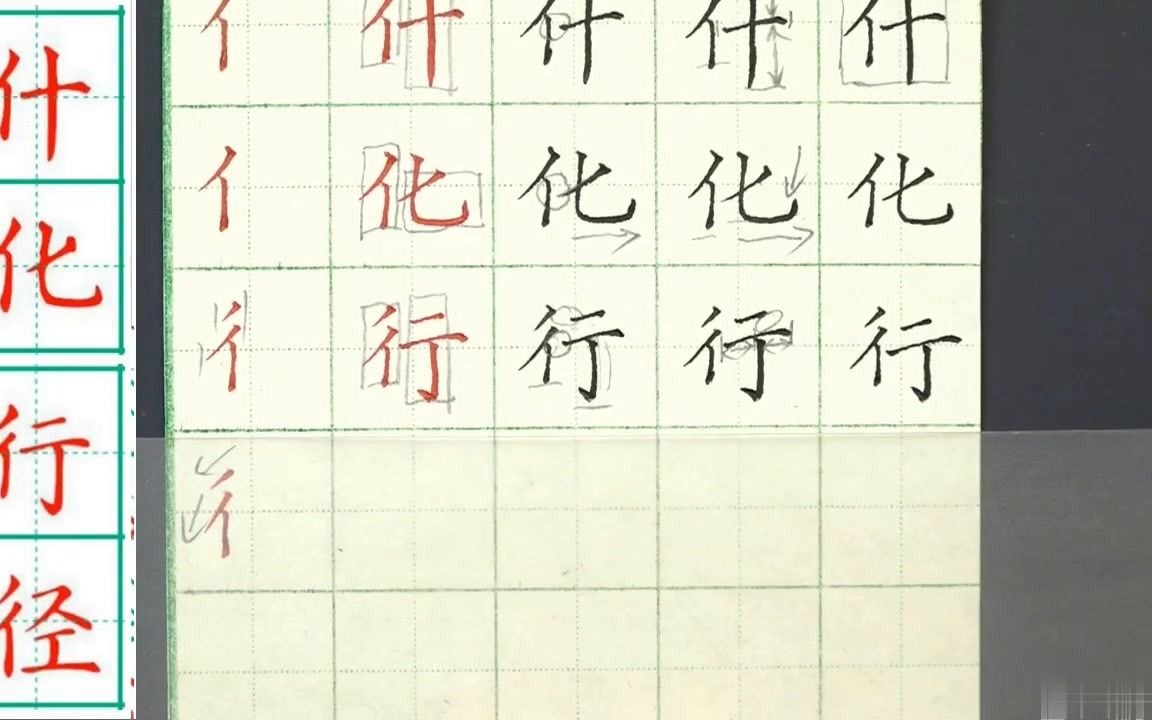 什
化
行
径
亻 什 什 什 什
亻 化 化 化 化
彳 行 行 行 行
彳